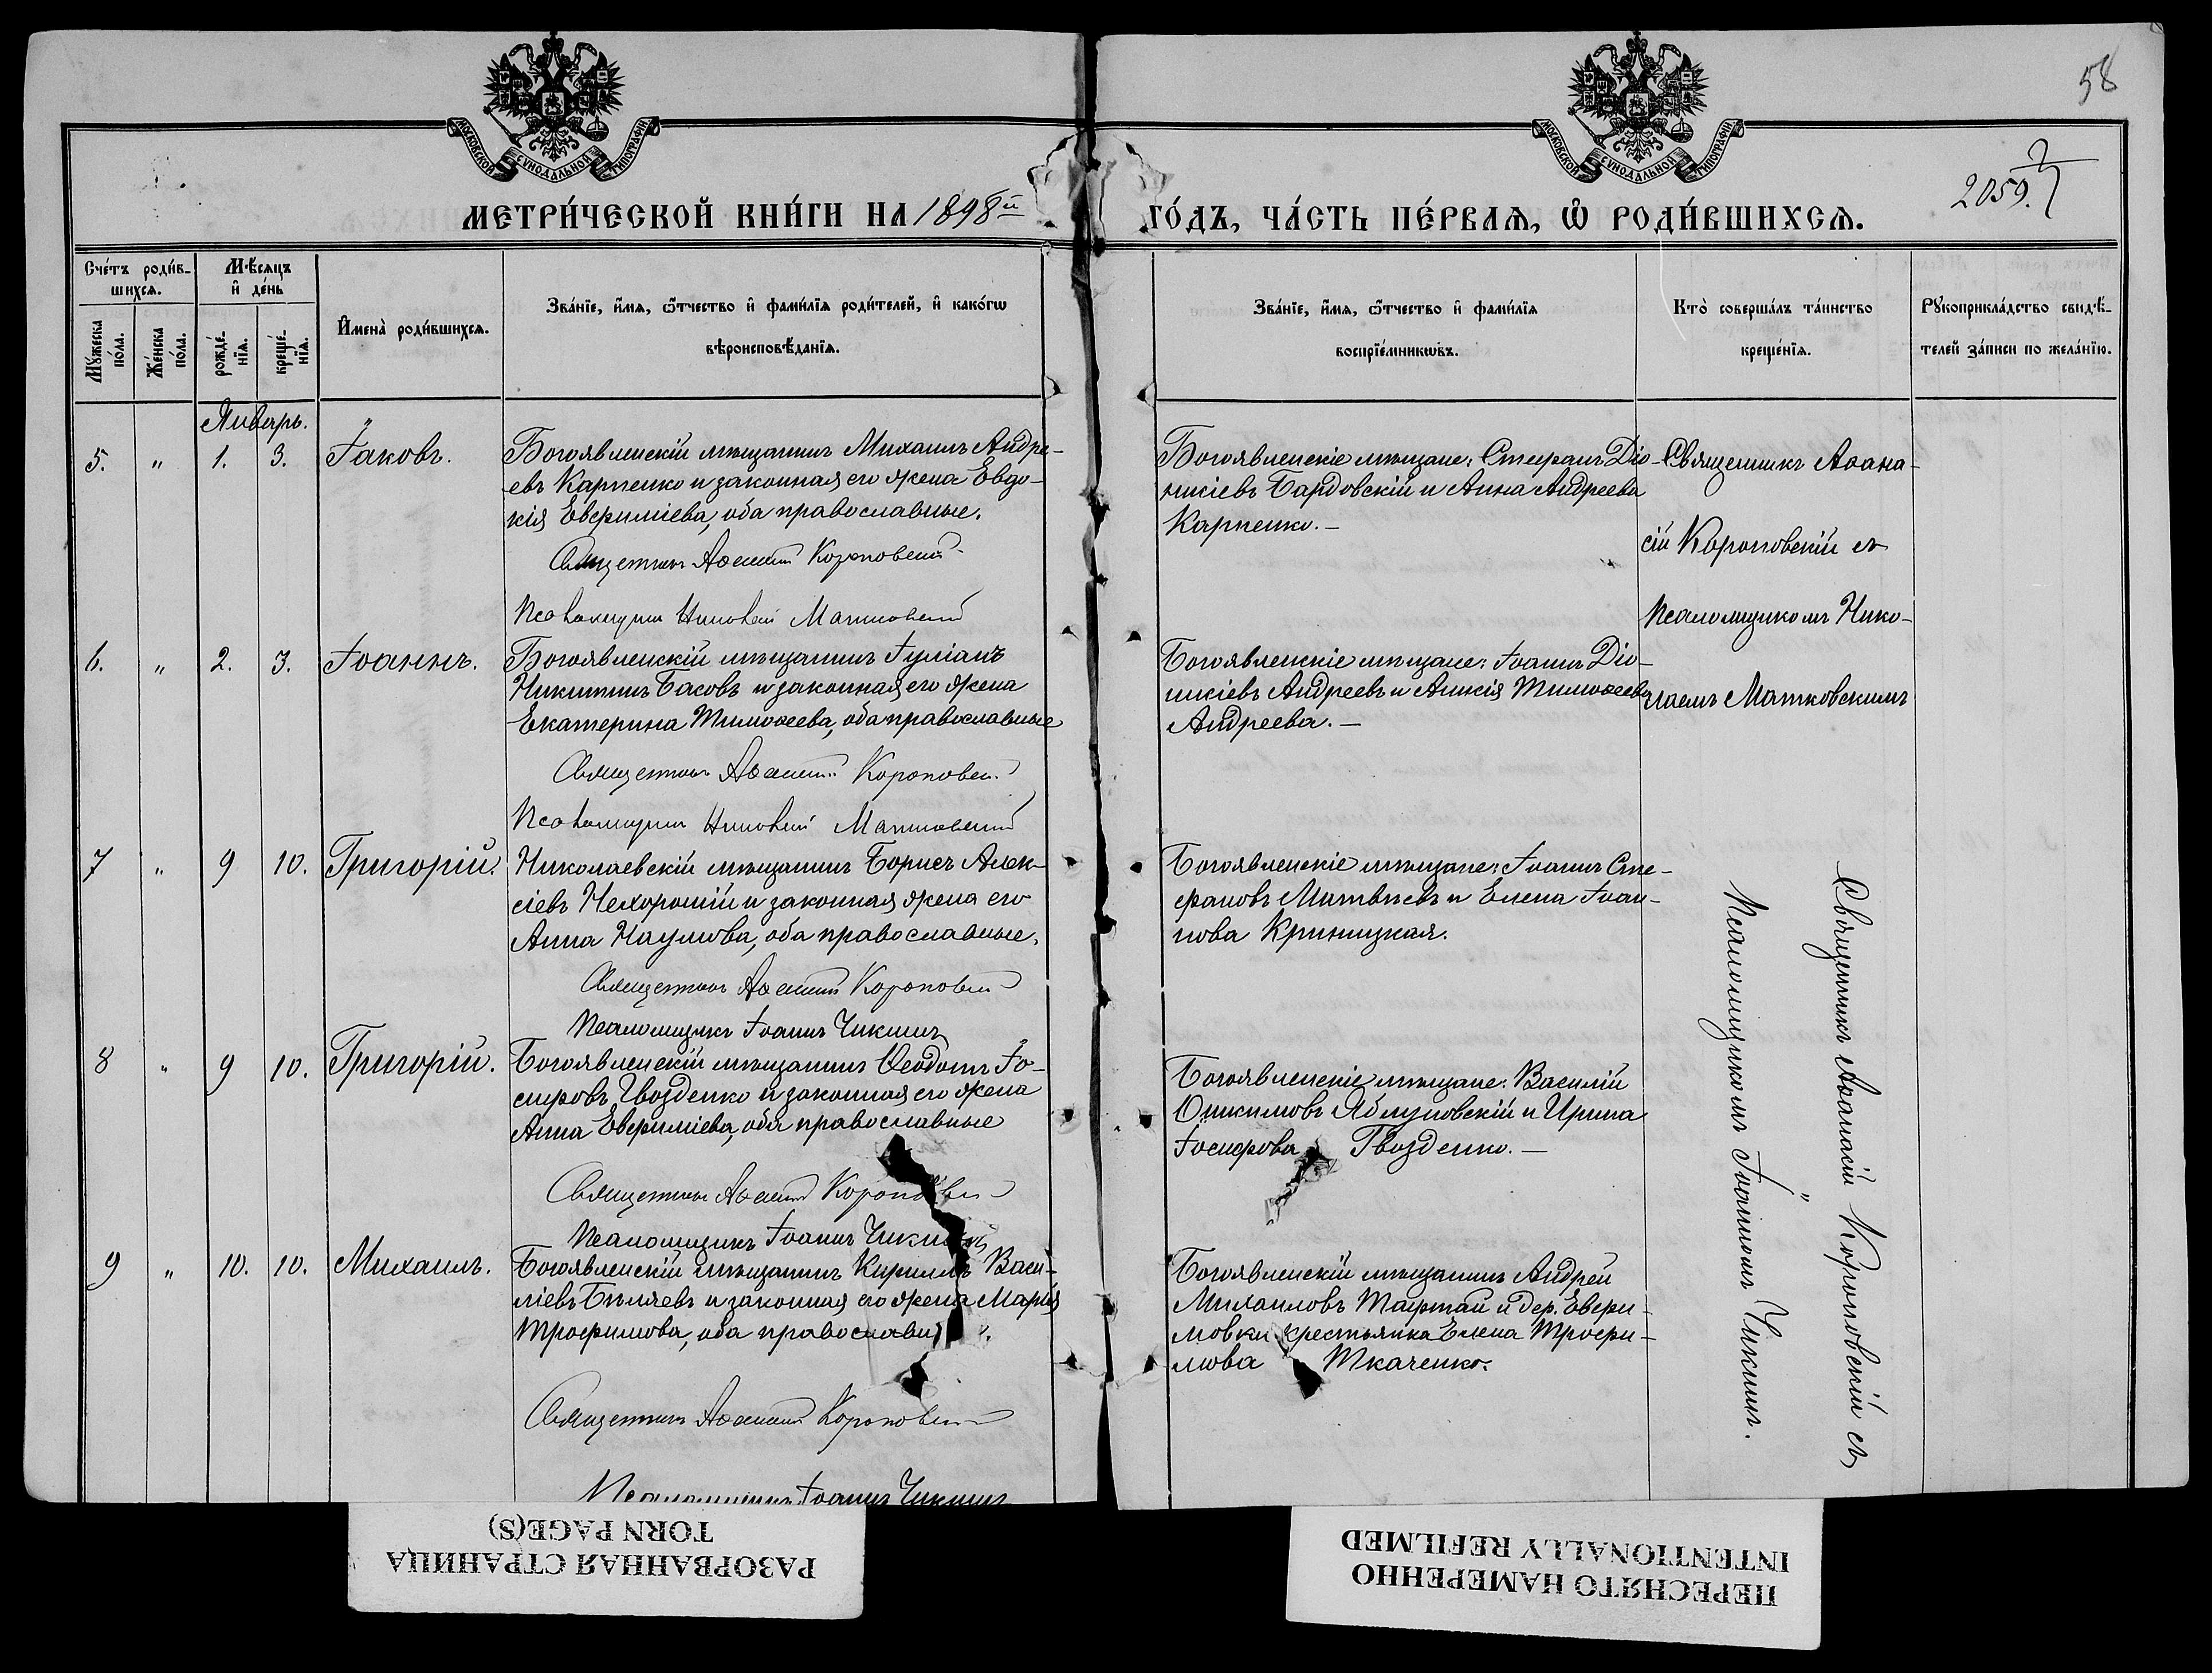 58
МОСКОВСКОЙ СѴНОДАЛЬНОЙ ТИПОГРАФІИ
МОСКОВСКОЙ СѴНОДАЛЬНОЙ ТИПОГРАФІИ
2059.
МЕТРИ́ЧЕСКОЙ КНИ́ГИ НА 1898й
ГО́ДЪ, ЧА́СТЬ ПЕ́РВАѦ, Ѽ РОДИ́ВШИХСѦ.
Сче́тъ роди́в-
шихсѧ.
Мꙋ́жеска по́ла.
Же́нска по́ла.
Мѣ́сѧцъ
и҆ де́нь
рожде́-
нїѧ.
креще́-
нїѧ.
И҆мена̀ роди́вшихсѧ.
Зва́нїе, и҆́мѧ, ѻ҆́тчество и҆ фами́лїѧ роди́телей, и҆ како́гѡ
вѣроисповѣ́данїѧ.
Зва́нїе, и҆́мѧ, ѻ҆́тчество и҆ фами́лїѧ
воспрїе́мникѡвъ.
Кто̀ соверша́лъ та́инство
креще́нїѧ.
Рꙋкоприкла́дство свидѣ́-
телей за́писи по жела́нїю.
Январь.
5. " 1. 3. Іаковъ.
Богоявленскій мѣщанинъ Михаилъ Андре-
евъ Карпенко и законная его жена Евдо-
кія Евфиміева, оба православные.
Священникъ Аѳанасій Короповскій
Псаломщикъ Николай Матковскій
Богоявленскіе мѣщане: Стефанъ Діо-
нисіевъ Бардовскій и Анна Андреева
Карпенко. —
Священникъ Аѳана-
сій Короповскій съ
Псаломщикомъ Нико-
лаемъ Матковскимъ
6. " 2. 3. Іоаннъ.
Богоявленскій мѣщанинъ Іуліанъ
Никитинъ Басовъ и законная его жена
Екатерина Тимоѳеева, оба православные
Священникъ Аѳанасій Короповскій
Псаломщикъ Николай Матковскій
Богоявленскіе мѣщане: Іоаннъ Діо-
нисіевъ Андреевъ и Анисія Тимоѳеева
Андреева. —
7 " 9 10. Григорій.
Николаевскій мѣщанинъ Борисъ Алек-
сіевъ Нехорошій и законная жена его
Анна Наумова, оба православные.
Священникъ Аѳанасій Короповскій
Псаломщикъ Іоаннъ Чикшинъ
Богоявленскіе мѣщане: Іоаннъ Сте-
фановъ Матвѣевъ и Елена Іоан-
нова Криницкая.
8 " 9 10. Григорій.
Богоявленскій мѣщанинъ Ѳеодотъ Іо-
сифовъ Гвозденко и законная его жена
Анна Евфиміева, оба православные
Священникъ Аѳанасій Короповскій
Псаломщикъ Іоаннъ Чикшинъ
Богоявленскіе мѣщане: Василій
Яблуновскій и Ирина
Іосифова Гвозденко. —
Священникъ Аѳанасій Короповскій съ
Псаломщикомъ Іоанномъ Чикшинъ.
9 " 10. 10. Михаилъ.
Богоявленскій мѣщанинъ Кириллъ Васи-
ліевъ Бѣляевъ и законная его жена Марія
Трофимова, оба православн
Священникъ Аѳанасій Короповскій
Псаломщикъ Іоаннъ Чикшинъ
Богоявленскій мѣщанинъ Андрей
Михаиловъ Тафтай и дер. Евфи-
мовки крестьянка Елена Трофи-
мова Ткаченко.
РАЗОРВАННАЯ СТРАНИЦА
TORN PAGE(S)
ПЕРЕСНЯТО НАМЕРЕННО
INTENTIONALLY REFILMED